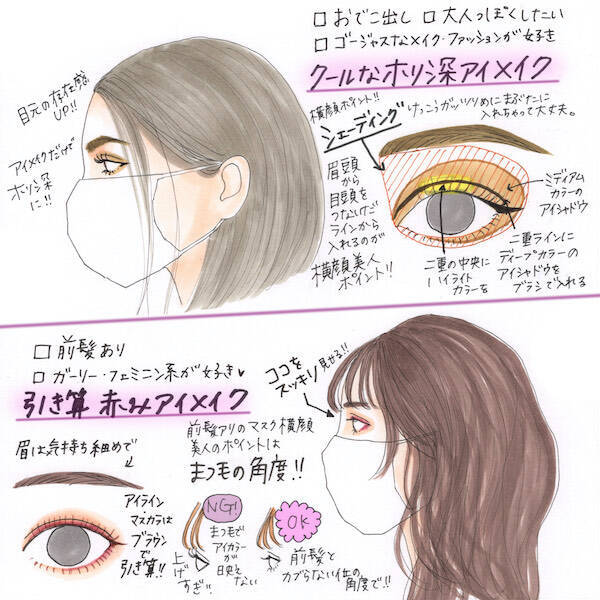 □おでこ出し □大人っぽくしたい
□ゴージャスなメイク・ファッションが好き
クールなホリ深アイメイク
目元の存在感
UP!!
アイメイクだけで
ホリ深
に!!
横顔ポイント!!
シェーディング
けっこうガッツリめにまぶたに
入れちゃって大丈夫。
眉頭
から
目頭を
つなげた
ラインから
入れるのが
横顔美人
ポイント!!
ミディアム
カラーの
アイシャドウ
二重の中央に
ハイライト
カラーを
二重ラインに
ディープカラーの
アイシャドウを
ブラシで入れる
□前髪あり
□ガーリー・フェミニン系が好き♥
引き算 赤みアイメイク
眉は気持ち細めで
アイライン
マスカラは
ブラウン
で
引き算!!
前髪アリのマスク横顔
美人のポイントは
まつ毛の角度!!
ココを
スッキリ見せる!!
NG!
上げ
すぎ!!
まつ毛で
アイカラー
が
映え
ない
OK
前髪と
カブらない位の
角度で!!